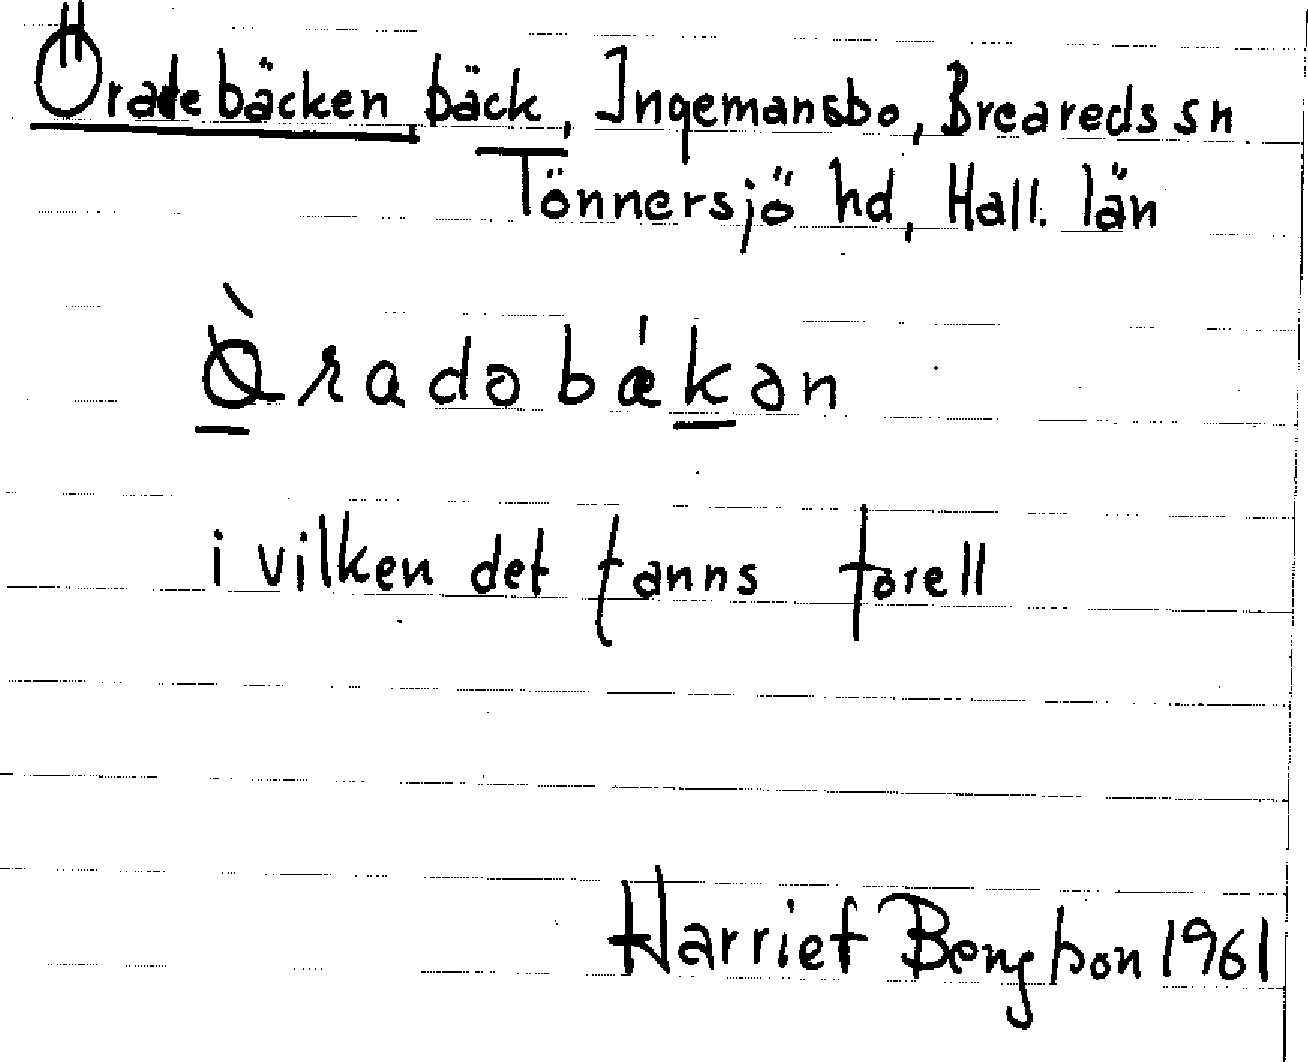 Öradebäcken, bäck, Ingemansbo, Breareds sn
Tönnersjö hd, Hall. län
Q̀radobǽkan
i vilken det fanns forell
Harriet Bengtson 1961